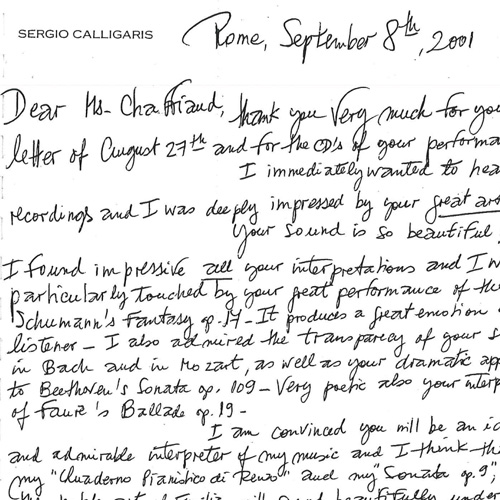 SERGIO CALLIGARIS
Rome, September 8th, 2001
Dear Ms. Chaffriaud, thank you very much for you
letter of August 27th and for the CD's of your performa
I immediately wanted to hea
recordings and I was deeply impressed by your great ar
Your sound is so beautiful
I found impressive all your interpretations and I w
particularly touched by your great performance of the
Schumann's Fantasy op. 17 - It produces a great emotion
listener - I also admired the transparcy of your s
in Bach and in Mozart, as well as your dramatic app
to Beethoven's Sonata op. 109 - Very poetic also your interp
of Faurè's Ballade op. 19 -
I am convinced you will be an id
and admirable interpreter of my music and I think th
my "Quaderno Pianistico di Renzo" and my "Sonata op. 9"